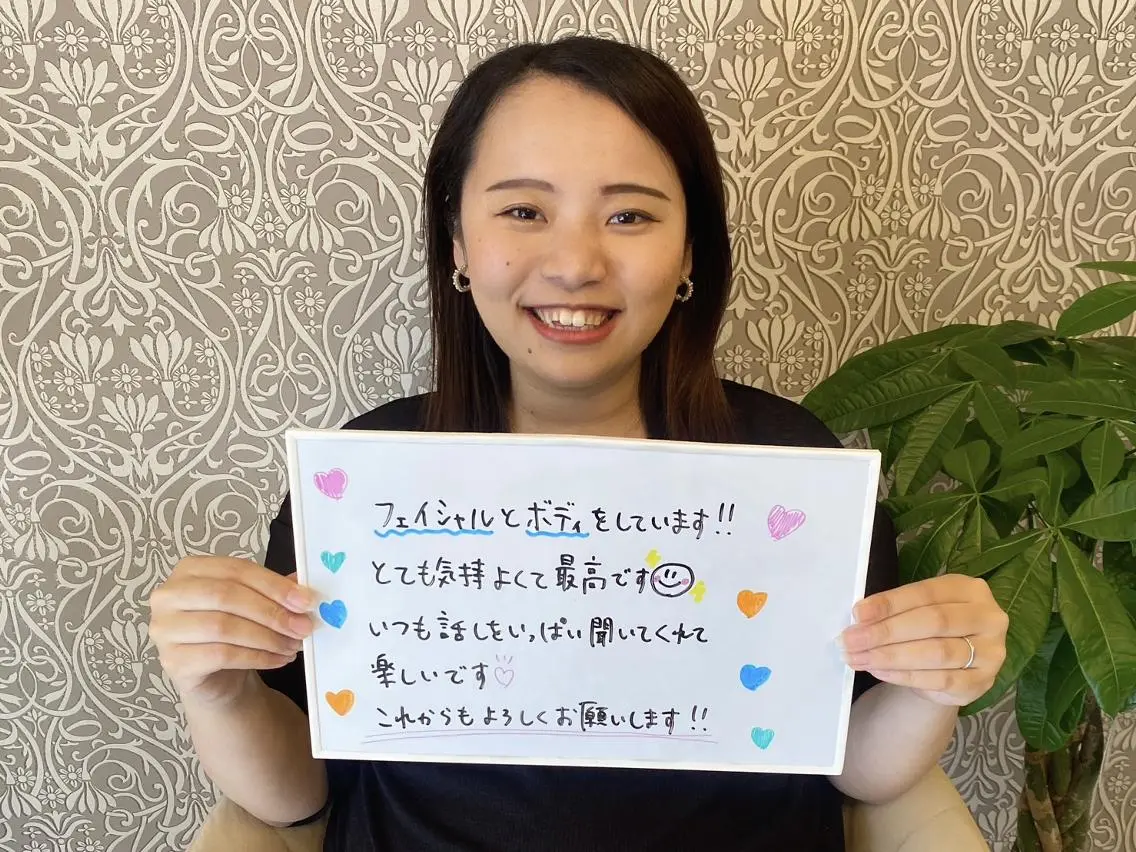 フェイシャルとボディをしています!!
とても気持よくて最高です
いつも話しをいっぱい聞いてくれて
楽しいです♡
これからもよろしくお願いします!!